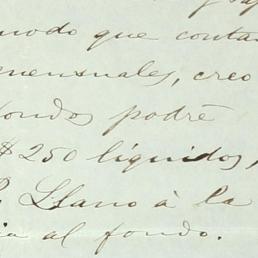 modo que conta
mensuales, creo
fondos podré
$250 líquidos,
P. Llano à la
ia al fondo.